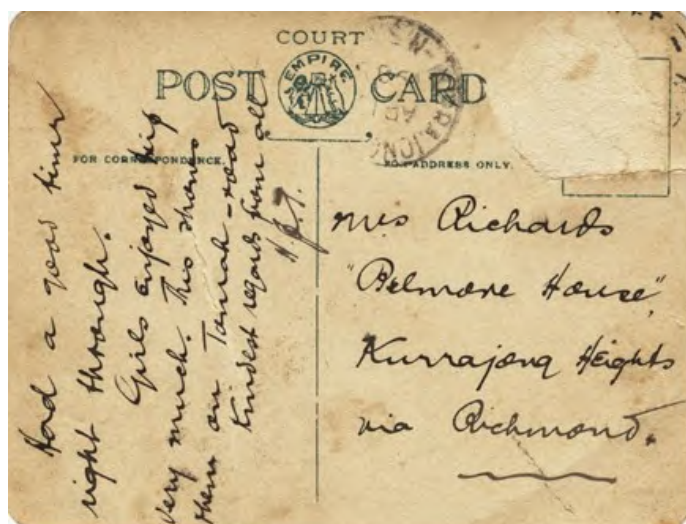 COURT
POST CARD
EMPIRE
FOR CORRESPONDENCE.
TO ADDRESS ONLY.
KURRAJONG
Had a good time
right through.
Girls enjoyed trip
very much. This shows
them on road
Kindest regards from all
Mrs Richards
"Belmore House",
Kurrajong Heights
via Richmond.